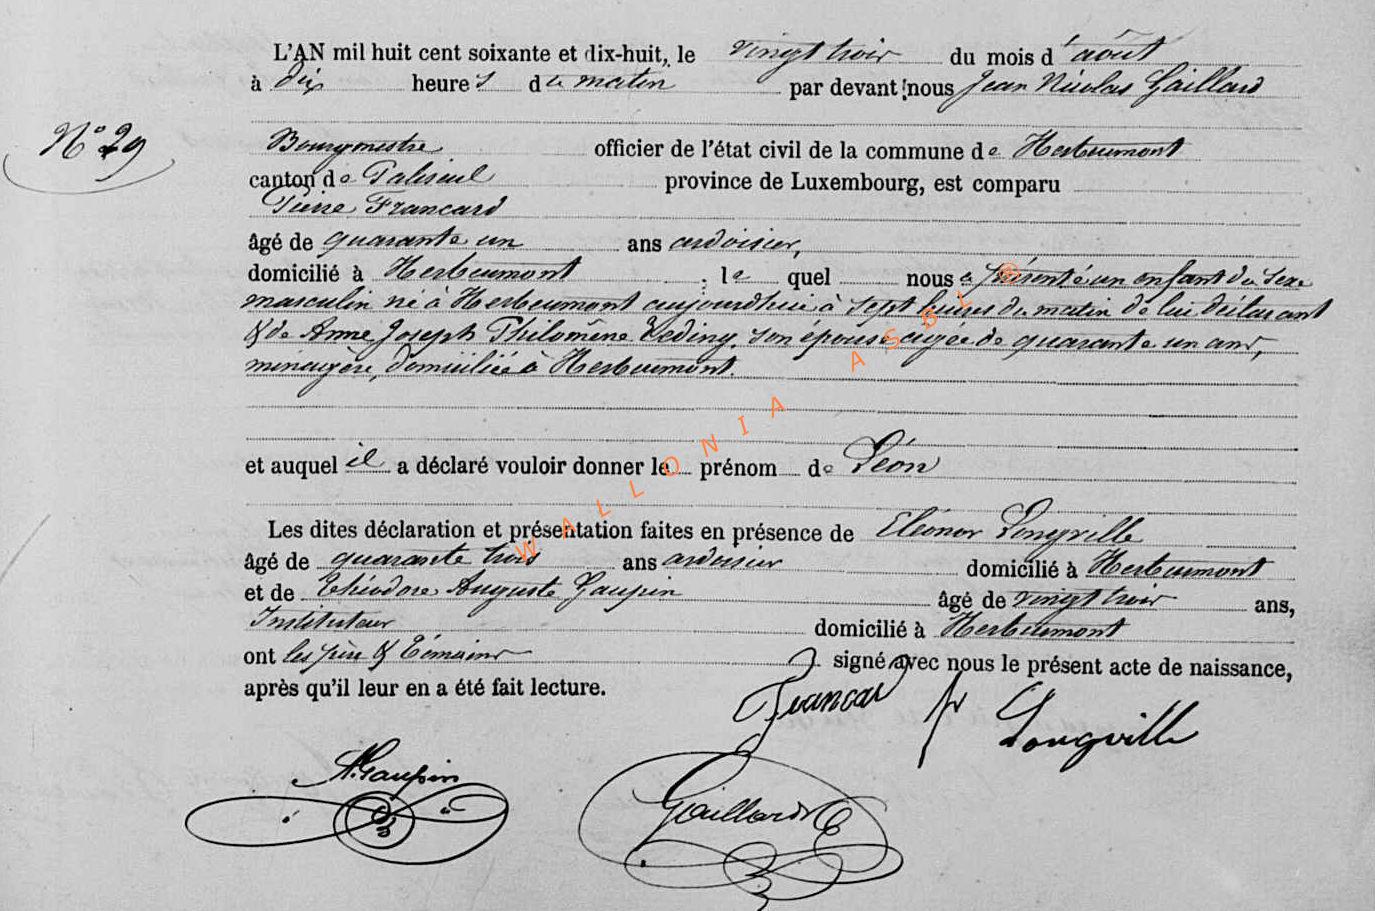 L'AN mil huit cent soixante et dix-huit, le vingt trois du mois d'août
à dix heures du matin par devant nous Jean Nicolas Gaillard
N° 29
Bourgmestre officier de l'état civil de la commune de Herbeumont
canton de Paliseul province de Luxembourg, est comparu
Pierre Francard
âgé de quarante un ans ardoisier,
domicilié à Herbeumont ; lequel nous a présenté un enfant du sexe
masculin né à Herbeumont aujourdhui à sept heures du matin de lui déclarant
& de Anne Joseph Philomène son épouse agée de quarante un ans,
ménagère, domiciliée à Herbeumont.
et auquel il a déclaré vouloir donner le prénom de Léon
Les dites déclaration et présentation faites en présence de Eléonor Longville
âgé de quarante trois ans ardoisier domicilié à Herbeumont
et de Théodore Auguste Gaupin âgé de vingt trois ans,
Instituteur domicilié à Herbeumont
ont les père & témoins signé avec nous le présent acte de naissance,
après qu'il leur en a été fait lecture.
Francard Longville
A. Gaupin
Gaillard
WALLONIA ASBL ®